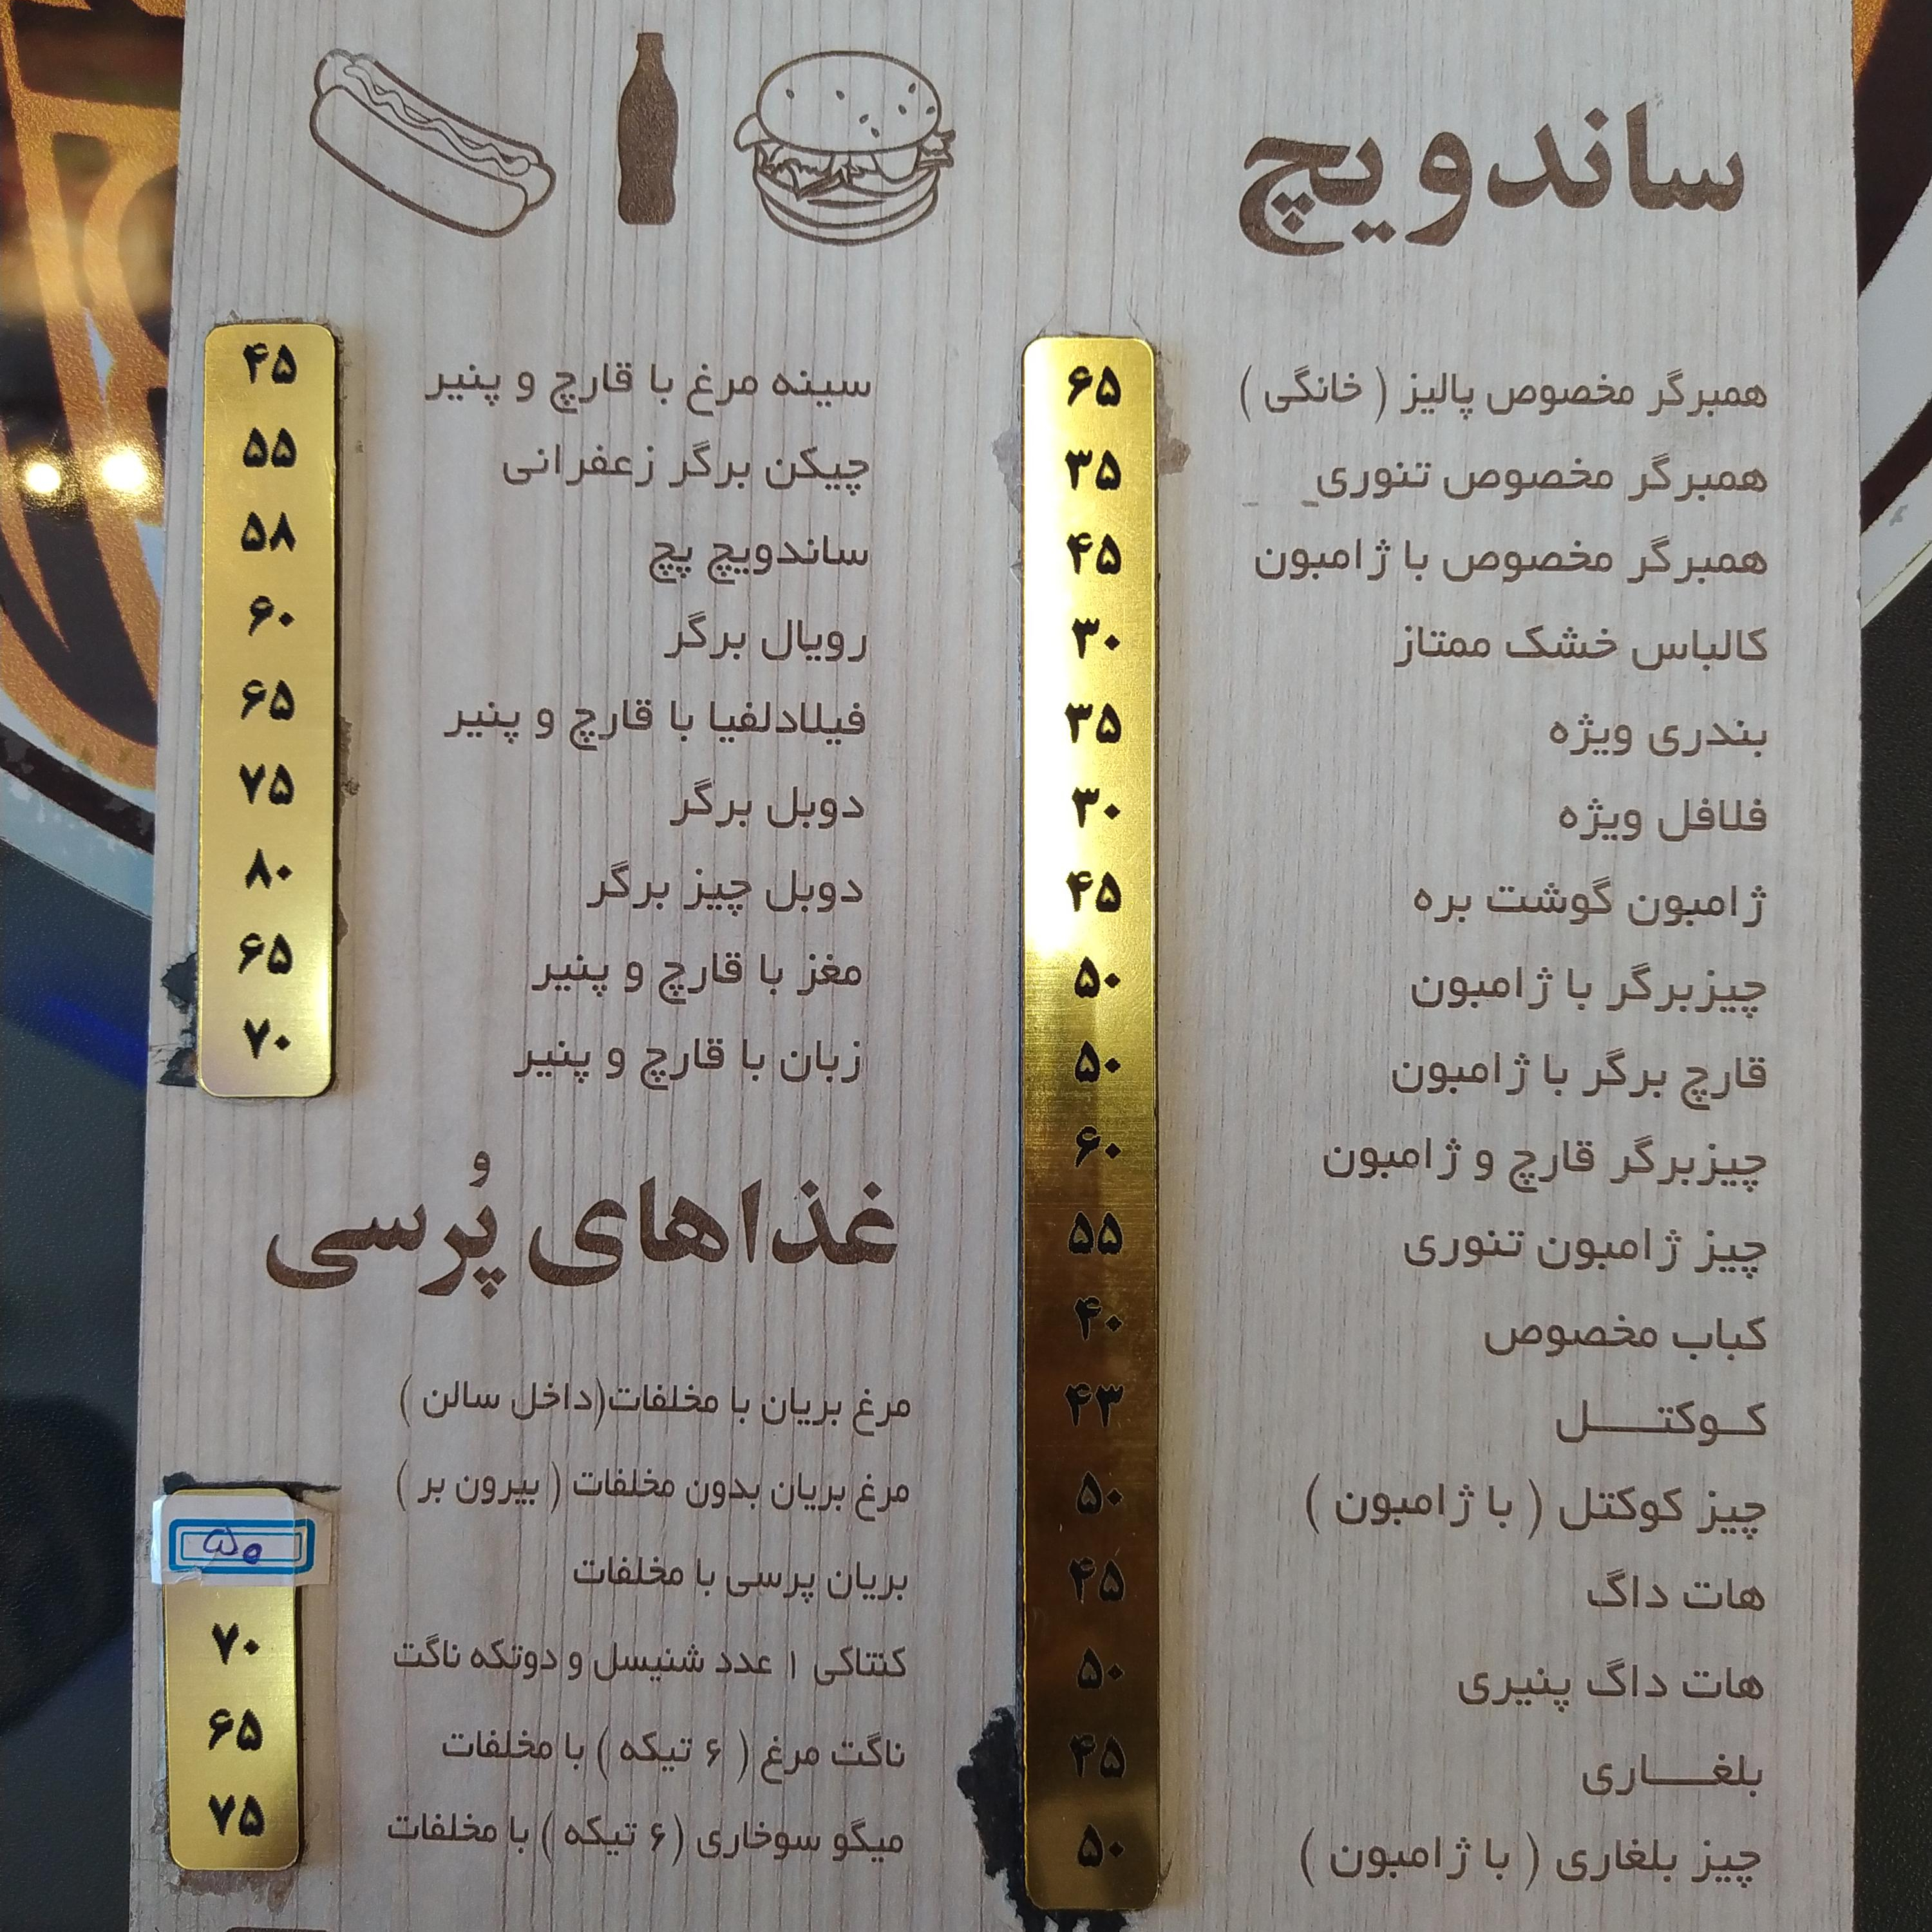 ساندویچ
همبرگر مخصوص پالیز ( خانگی ) ۶۵
همبرگر مخصوص تنوری ۳۵
همبرگر مخصوص با ژامبون ۴۵
کالباس خشک ممتاز ۳۰
بندری ویژه ۳۵
فلافل ویژه ۳۰
ژامبون گوشت بره ۴۵
چیزبرگر با ژامبون ۵۰
قارچ برگر با ژامبون ۵۰
چیزبرگر قارچ و ژامبون ۶۰
چیز ژامبون تنوری ۵۵
کباب مخصوص ۴۰
کوکتل ۴۳
چیز کوکتل ( با ژامبون ) ۵۰
هات داگ ۴۵
هات داگ پنیری ۵۰
بلغاری ۴۵
چیز بلغاری ( با ژامبون ) ۵۰
سینه مرغ با قارچ و پنیر ۴۵
چیکن برگر زعفرانی ۵۵
ساندویچ پچ ۵۸
رویال برگر ۶۰
فیلادلفیا با قارچ و پنیر ۶۵
دوبل برگر ۷۵
دوبل چیز برگر ۸۰
مغز با قارچ و پنیر ۶۵
زبان با قارچ و پنیر ۷۰
غذاهای پُرسی
مرغ بریان با مخلفات(داخل سالن )
مرغ بریان بدون مخلفات ( بیرون بر )
بریان پرسی با مخلفات ۵۰
کنتاکی ۱ عدد شنیسل و دوتکه ناگت ۷۰
ناگت مرغ ( ۶ تیکه ) با مخلفات ۶۵
میگو سوخاری (۶ تیکه ) با مخلفات ۷۵